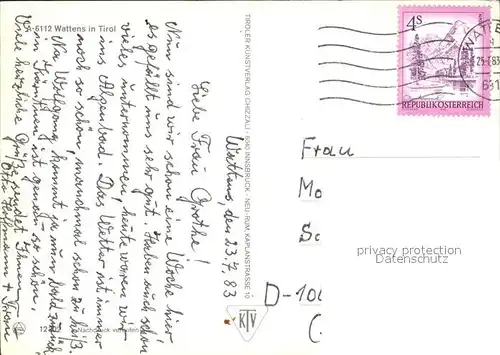 A-6112 Wattens in Tirol
Wattens, den 23.7.83
Liebe Frau Grothe!
Nun sind wir schon eine Woche hier
es gefällt uns sehr gut. Haben auch schon
vieles unternommen, heute waren wir
ins Alpenbad. Das Wetter ist immer
noch so schön, manchmal schon zu heiß.
Na, Wolfgang kommt ja nun bald auch
in ist genau so schön.
Viele herzliche Grüße sendet Ihnen
Hoffmann +
12
Nachdruck verboten
TIROLER KUNSTVERLAG CHIZZALI · 6040 INNSBRUCK - NEU-RUM, KAPLANSTRASSE 10
KTV
4 S
REPUBLIK ÖSTERREICH
WATTE
25.7.83
Frau
Mo
So
privacy protection
Datenschutz
D-100
(